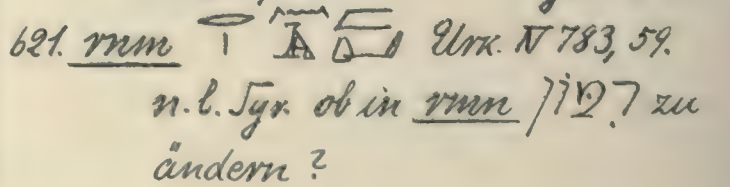 621. rnm Urk. IV 783, 59.
n. l. Syr. ob in rmn רִמּוֹן zu
ändern?